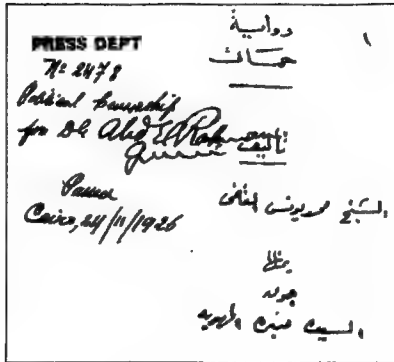 PRESS DEPT
Nº 2478
Political Censorship
for DG Abd El Rahman
Passed
Cairo, 24/11/1926
١
رواية
تأليف
الشيخ محمد يونس القاضى
جوقة
السيدة منيرة المهدية